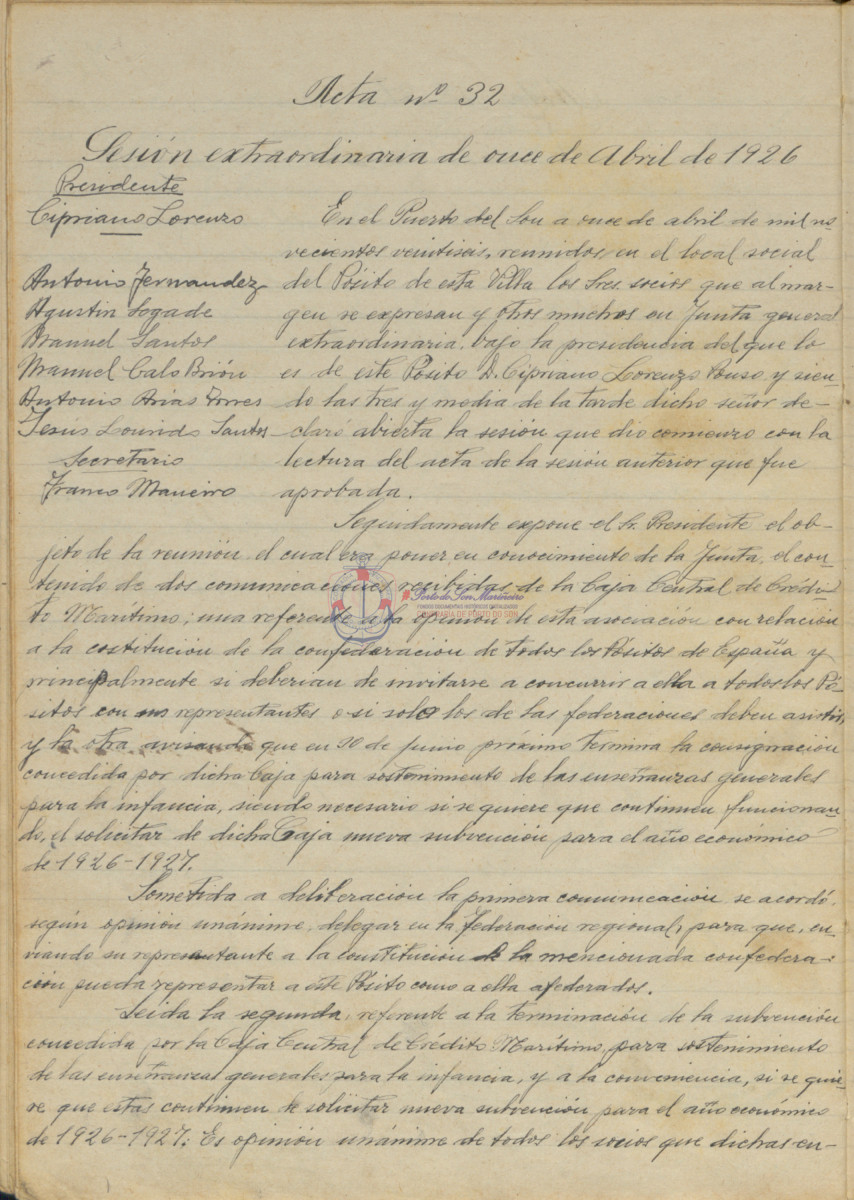 Acta nº 32
Sesión extraordinaria de once de Abril de 1926
Presidente
Cipriano Lorenzo
Antonio Fernandez
Agustin Logade
Manuel Santos
Manuel Calo Brión
Antonio Arias Torres
Jesus Lourido Santos
Secretario
Franco Maneiro
En el Puerto del Son a once de abril de mil no-
vecientos veintiseis, reunidos en el local social
del Pósito de esta Villa los Sres. socios que al mar-
gen se expresan y otros muchos en Junta general
extraordinaria, bajo la presidencia del que lo
es de este Pósito D. Cipriano Lorenzo Pouso y sien-
do las tres y media de la tarde dicho señor de-
claró abierta la sesión que dio comienzo con la
lectura del acta de la sesión anterior que fue
aprobada.
Seguidamente expone el Sr. Presidente el ob-
jeto de la reunión el cual era poner en conocimiento de la Junta, el con-
tenido de dos comunicaciones recibidas de la Caja Central de Crédi-
to Marítimo; una referente a la opinión de esta asociación con relación
a la costitución de la confederación de todos los Pósitos de España y
principalmente si deberian de invitarse a concurrir a ella a todos los Pó-
sitos con sus representantes o si solo los de las federaciones deben asistir,
y la otra avisando que en 30 de Junio próximo termina la consignación
concedida por dicha Caja para sostenimiento de las enseñanzas generales
para la infancia, siendo necesario si se quiere que continuen funcionan-
do, el solicitar de dicha Caja nueva subvención para el año económico
de 1926-1927.
Sometida a deliberación la primera comunicación se acordó,
según opinión unánime, delegar en la Federación regional, para que, en-
viando su representante a la constitución de la mencionada confedera-
ción pueda representar a este Pósito como a ella afederados.
Leida la segunda, referente a la terminación de la subvención
concedida por la Caja Central de Crédito Marítimo, para sostenimiento
de las enseñanzas generales para la infancia, y a la conveniencia, si se quie-
re que estas continuen de solicitar nueva subvención para el año económico
de 1926-1927: Es opinión unánime de todos los socios que dichas en-
Porto do Son Marineiro